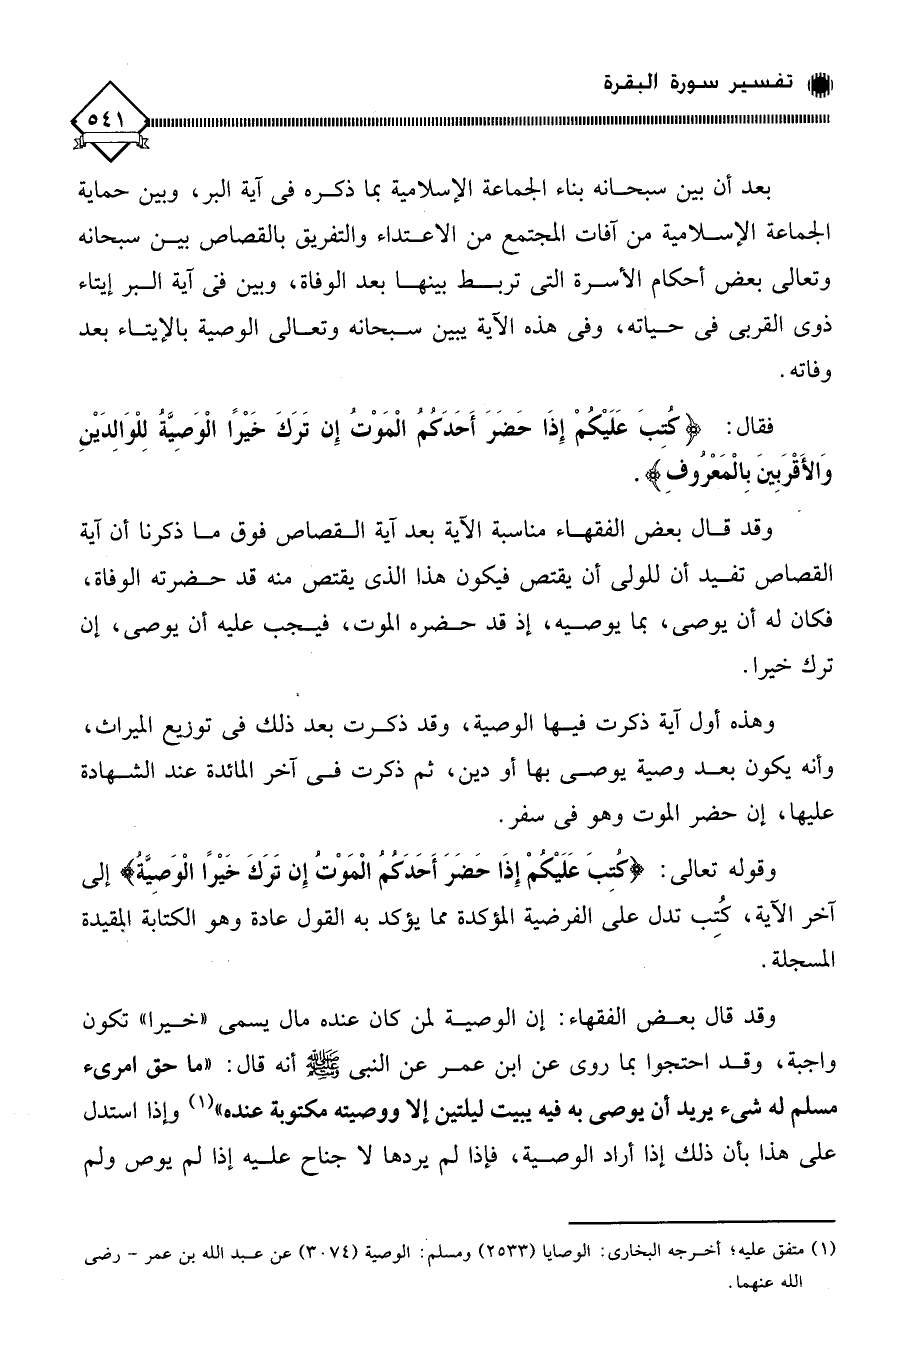 تفسير سورة البقرة
٥٤١
بعد أن بين سبحانه بناء الجماعة الإسلامية بما ذكره فى آية البر، وبين حماية
الجماعة الإسلامية من آفات المجتمع من الاعتداء والتفريق بالقصاص بين سبحانه
وتعالى بعض أحكام الأسرة التى تربط بينها بعد الوفاة، وبين فى آية البر إيتاء
ذوى القربى فى حياته، وفى هذه الآية يبين سبحانه وتعالى الوصية بالإيتاء بعد
وفاته.
فقال: ﴿كُتِبَ عَلَيْكُمْ إِذَا حَضَرَ أَحَدَكُمُ الْمَوْتُ إِن تَرَكَ خَيْرًا الْوَصِيَّةُ لِلْوَالِدَيْنِ
وَالأَقْرَبِينَ بِالْمَعْرُوفِ﴾.
وقد قال بعض الفقهاء مناسبة الآية بعد آية القصاص فوق ما ذكرنا أن آية
القصاص تفيد أن للولى أن يقتص فيكون هذا الذى يقتص منه قد حضرته الوفاة،
فكان له أن يوصى، بما يوصيه، إذ قد حضره الموت، فيجب عليه أن يوصى، إن
ترك خيرا.
وهذه أول آية ذكرت فيها الوصية، وقد ذكرت بعد ذلك فى توزيع الميراث،
وأنه يكون بعد وصية يوصى بها أو دين، ثم ذكرت فى آخر المائدة عند الشهادة
عليها، إن حضر الموت وهو فى سفر.
وقوله تعالى: ﴿كُتِبَ عَلَيْكُمْ إِذَا حَضَرَ أَحَدَكُمُ الْمَوْتُ إِن تَرَكَ خَيْرًا الْوَصِيَّةُ﴾ إلى
آخر الآية، كُتِب تدل على الفرضية المؤكدة مما يؤكد به القول عادة وهو الكتابة المقيدة
المسجلة.
وقد قال بعض الفقهاء: إن الوصية لمن كان عنده مال يسمى «خيرا» تكون
واجبة، وقد احتجوا بما روى عن ابن عمر عن النبى ﷺ أنه قال: «ما حق امرىء
مسلم له شىء يريد أن يوصى به فيه يبيت ليلتين إلا ووصيته مكتوبة عنده»(١) وإذا استدل
على هذا بأن ذلك إذا أراد الوصية، فإذا لم يردها لا جناح عليه إذا لم يوص ولم
(١) متفق عليه؛ أخرجه البخارى: الوصايا (٢٥٣٣) ومسلم: الوصية (٣٠٧٤) عن عبد الله بن عمر - رضى
الله عنهما.